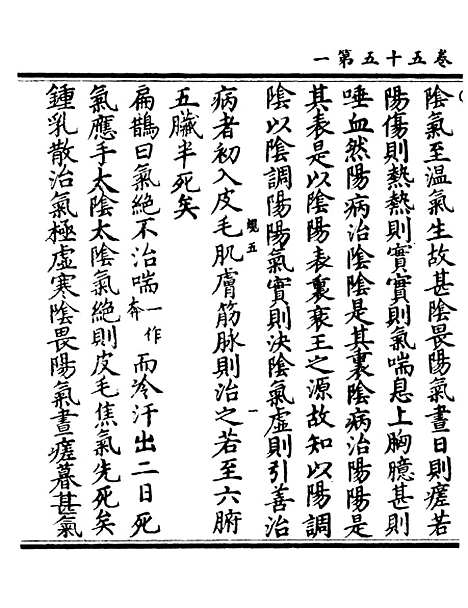 卷五十五第一
陰氣至溫氣生故甚陰畏陽氣晝日則瘥若
陽傷則熱熱則實實則氣喘息上胸臆甚則
唾血然陽病治陰陰是其裏陰病治陽陽是
其表是以陰陽表裏衰王之源故知以陽調
陰以陰調陽陽氣實則決陰氣虛則引善治
五 一
病者初入皮毛肌膚筋脉則治之若至六腑
五臟半死矣
扁鵲曰氣絕不治喘一作奔而冷汗出二日死
氣應手太陰太陰氣絕則皮毛焦氣先死矣
鍾乳散治氣極虛寒陰畏陽氣晝瘥暮甚氣